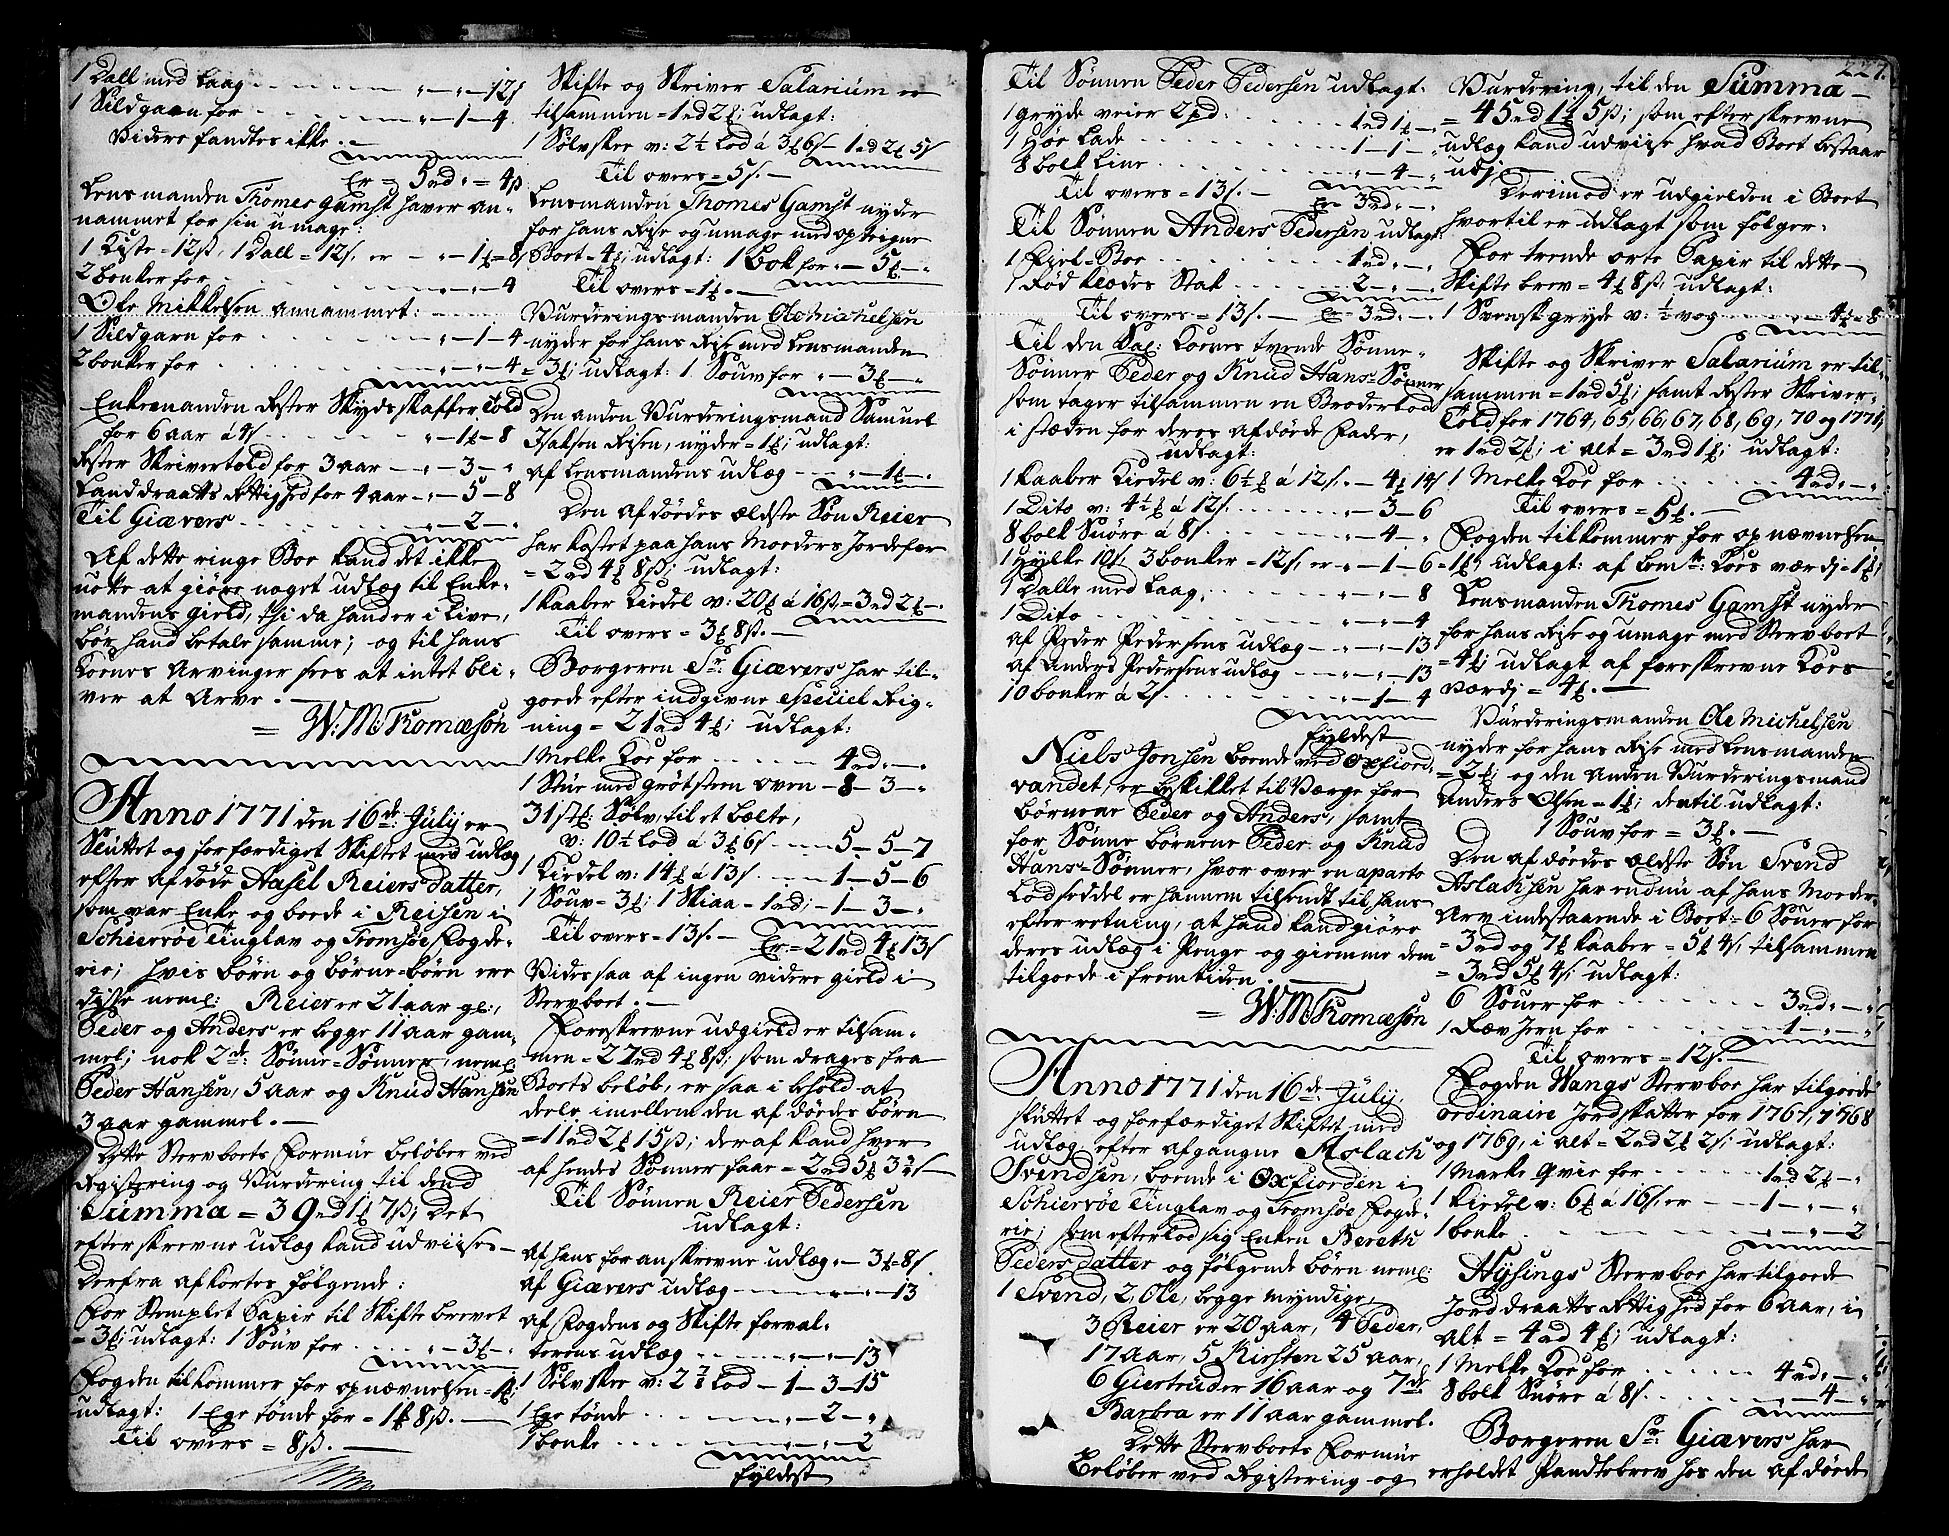 1 Dall med Laag - - - " - " - 12 s
1 Sildgarn for - - - " - 1 - 4
Videre fandtes ikke. -
Er = 5 rd " = 4 ß
Lensmanden Thomes Gamst haver an-
nammet for sin umage:
1 Kiste = 12 ß, 1 Dall = 12 s, er - " - 1 = 8 s
2 bonker for - - - " - " - 4
Ole Mikkelsen annammet:
1 Sildgarn for - - - " - 1 - 4
2 bonker for - - - " - " - 4
Enkemanden Rester Skydsskaffer Told
for 6 aar á 4 s - - - " - 1 - 8
Rester Skrivertold for 3 aar - " - 3 - "
Landdraatts Rettighed for 4 aar - " - 5 - 8
Til Giævers - - - " - 2 - "
Af dette ringe Boe kand det ikke
nötte at giöre noget udlæg til Enke-
mandens gield, thi da hand er i Live,
bör hand betale samme; og til hans
Koenes Arvinger sees at intet bli-
ver at Arve. -
= W: M: Thomæsön
Anno 1771 den 16de July er
Sluttet og forfærdiget Skiftet med udlæg
efter afdöde Aasel Reiers datter,
som var Enke og boede i Reisen i
Schiervöe Tinglav og Tromsöe Fogde-
rie; hvis börn og börne-börn ere
disse neml: Reier er 21 aar gl:,
Peder og Anders er begge 11 aar gam-
mel; nok 2de Sönne-Sönner, neml:
Peder Hansen, 5 aar og Knud Hansen
3 aar gammel. -
Dette Stervboets Formue beløber ved
Registering og Vurdering til dend
Summa = 39 rd 1 7 ß; det
efterskrevne udlæg kand udviise -
Derfra afkortes fölgende:
For Stemplet Papir til Skifte brevet
= 3; udlagt: 1 Souv for - - - " - 3 - "
Fogden tilkommer for opnævnelsen = 1;
udlagt: 1 Ege tönde for = 1 8 ß. -
Til overs = 8 ß. -
Skifte og Skriver Salarium er
tilsammen = 1 rd 2; udlagt:
1 Sölvskee v: 2½ Lod á 3 6 s - 1 rd 2 5 s
Til overs = 5 s. -
Lensmanden Thomes Gamst nyder
for hans Rejse og umage med opteigne
Boet = 4; udlagt: 1 Bok for " - 5 - "
Til overs = 1. -
Vurderingsmanden Ole Michelsen
nyder for hans Rejse med Lensmanden
= 3; udlagt: 1 Souv for " - 3 - "
Den anden Vurderingsmand Samuel
Isaksen Reisen, nyder = 1; udlagt:
af Lensmandens udlæg - - " - 1 - "
Den afdöedes ældste Sön Reier
har kostet paa hans Moeders Jordefær
= 2 rd 4 8 ß; udlagt:
1 Kaaber Kiedel v: 20 á 16 ß = 3 rd 2 - "
Til overs = 3 8 ß. -
Borgeren Sr. Giævers har til-
goede efter indgivne speciel Reig-
ning = 21 rd 4; udlagt:
1 Melke Koe for - - - 4 rd " - "
1 Stue med grötsteen oven - 8 - 3 - "
31 st. Sölv, til et bælte,
v: 10½ Lod á 3 6 s - - - 5 - 5 - 7
1 Kiedel v: 14 á 13 s - - - 1 - 5 - 6
1 Souv = 3; 1 Skiaa = 1 rd; - 1 - 3 - "
Til overs = 13 s. - Er = 21 rd 4 13 s
Vides saa af ingen videre gield i
Stervboet. -
Foreskrevne udgield er tilsam-
men = 27 rd 4 8 ß; som drages fra
Boets belöb, er saa i behold at
deele imellem den afdöedes börn
= 11 rd 2 15 ß; deraf kand hver
af hendes Sönner faar = 2 rd 5 3 s -
Til Sönnen Reier Pedersen
udlagt:
af hans foranskrevne udlæg " - 3 = 8 s
af Giævers udlæg - - - " - " - 13
af Fogdens og Skifte forval-
terens udlæg - - - " - " - 13
1 Sölvskee v: 2⅞ Lod - 1 - 3 - 15
1 Ege tönde - - - " - 2 - "
1 bonke - - - " - " - 2
fyldest
227.
Til Sönnen Peder Pedersen udlagt:
1 gryde veier 2 pd: - - - 1 rd 1 - "
1 Höe Lade - - - 1 - 1 - "
8 bolk Line - - - " - 4 - "
Til overs = 13 s. - Er 3 rd " - "
Til Sönnen Anders Pedersen udlagt:
1 Fiæl-Boe - - - 1 rd " - "
1 Röd klædes Stak - - - 2 - " - "
Til overs = 13 s. - Er = 3 rd " - "
Til den Sal: Koenes tvende Sönne-
Sönner Peder og Knud Hans-Sönner
som tager tilsammen en Broderlod
i stæden for deres afdöede Fader,
udlagt:
1 Kaaber Kiedel v: 6½ á 12 s. - 4 14 s
1 Dito v: 4½ á 12 s. - - - " - 3 - 6
8 bolk Snöre á 8 s. - - - " - 4 - "
1 Hylke 10 s, 3 bonker = 12 s, er " - 1 - 6
1 Dalle med Laag. - - - " - " - 8
1 Dito - - - " - " - 4
af Peder Pedersens udlæg - " - " - 13
af Anders Pedersens udlæg - - " - " - 13
10 bonker á 2 s. - - - " - 1 - 4
fyldest
Niels Jonsen boende ved Oxfiord-
vandet, er beskikket til Værge for
börnene Peder og Anders, samt
for Sönne börnene Peder og Knud
Hans-Sönner, hvor over en aparte
Lodseddel er hannem tilsendt til hans
efterretning, at hand kand giöre
deres udlæg i Penge og giemme dem
tilgoede i fremtiden. -
= W: M: Thomæsön
Anno 1771 den 16de July
sluttet og forfærdiget Skiftet med
udlæg efter afgangne Aslach
Svendsen, boende i Oxfiorden i
Schiervöe Tinglav og Tromsöe Fogde-
rie; som efterlod sig Enken Bereth
Peders datter og fölgende börn neml:
1 Svend, 2, Ole, begge myndige,
3 Reier er 20 aar, 4 Peder,
17 aar, 5 Kirsten 25 aar,
6 Giertruder 16 aar og 7de
Barbra er 11 aar gammel.
Dette Stervboets Formue
Beløber ved Registering og
Vurdering, til den Summa -
= 45 rd 1 5 ß; som efterskrevne
udlæg kand udviise hvad Boet bestaar
udj -
Derimod er udgielden i Boet
hvortil er udlagt som fölger.
For trende arte Papir til dette
Skifte brev = 4 8 ß; udlagt:
1 Svensk gryde v: ½ vog - - " - 4 = 8
Skifte og Skriver Salarium er til-
sammen = 1 rd 5; samt Rester Skriver-
Told for 1764, 65, 66, 67, 68, 69, 70 og 1771,
er 1 rd 2; i alt = 3 rd 1; udlagt:
1 Melke Koe for - - - 4 rd " - "
Til overs = 5. -
Fogden tilkommer for opnævnelsen
= 1, udlagt: af bem.te Koes værdj = 1;
Lensmanden Thomes Gamst nyder
for hans Rejse og umage med Stervboet
= 4; udlagt af foreskrevne Koes
værdj = 4. -
Vurderingsmanden Ole Michelsen
nyder for hans Rejse med Lensmanden
= 2; og den anden Vurderingsmand
Anders Olsen = 1; dertil udlagt:
1 Souv for = 3. -
Den afdöedes ældste Sön Svend
Aslachsen har endnu af hans Moeder-
Arv indestaaende i Boet = 6 Souer for
= 3 rd og 7 Kaaber = 5 4 s, tilsammen
= 3 rd 5 4 s; udlagt:
6 Souer for - - - 3 rd " - "
1 Ræv Jern for - - - 1 - " - "
Til overs = 12 s. -
Fogden Wangs Stervboe har tilgoede
ordinaire Jordskatter for 1767, 1768
og 1769, i alt = 2 rd 2 2 s; udlagt:
1 Marke qvie for - - - 1 rd 2 - "
1 Kiedel v: 6 á 16 s. er - - 1 - " - "
1 bonke - - - " - " - 2
Hysings Stervboe har tilgoede
Jorddraatts Rettighed for 6 aar, i
alt = 4 rd 4; udlagt:
1 Melke Koe for - - - 4 rd " - "
8 bolk Snöre á 8 s. - - - " - 4 - "
Borgeren Sr. Giævers har
erholdet Pandtebrev hos den afdöede